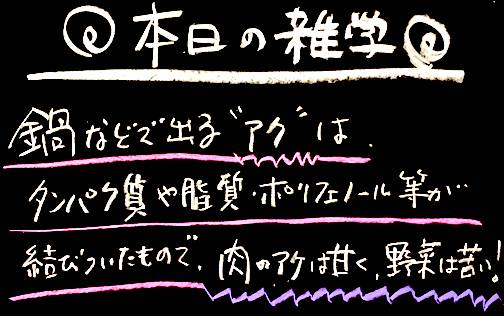 本日の雑学
鍋などで出る"アク"は、
タンパク質や脂質・ポリフェノール等が
結びついたもので、肉のアクは甘く、野菜は苦い!